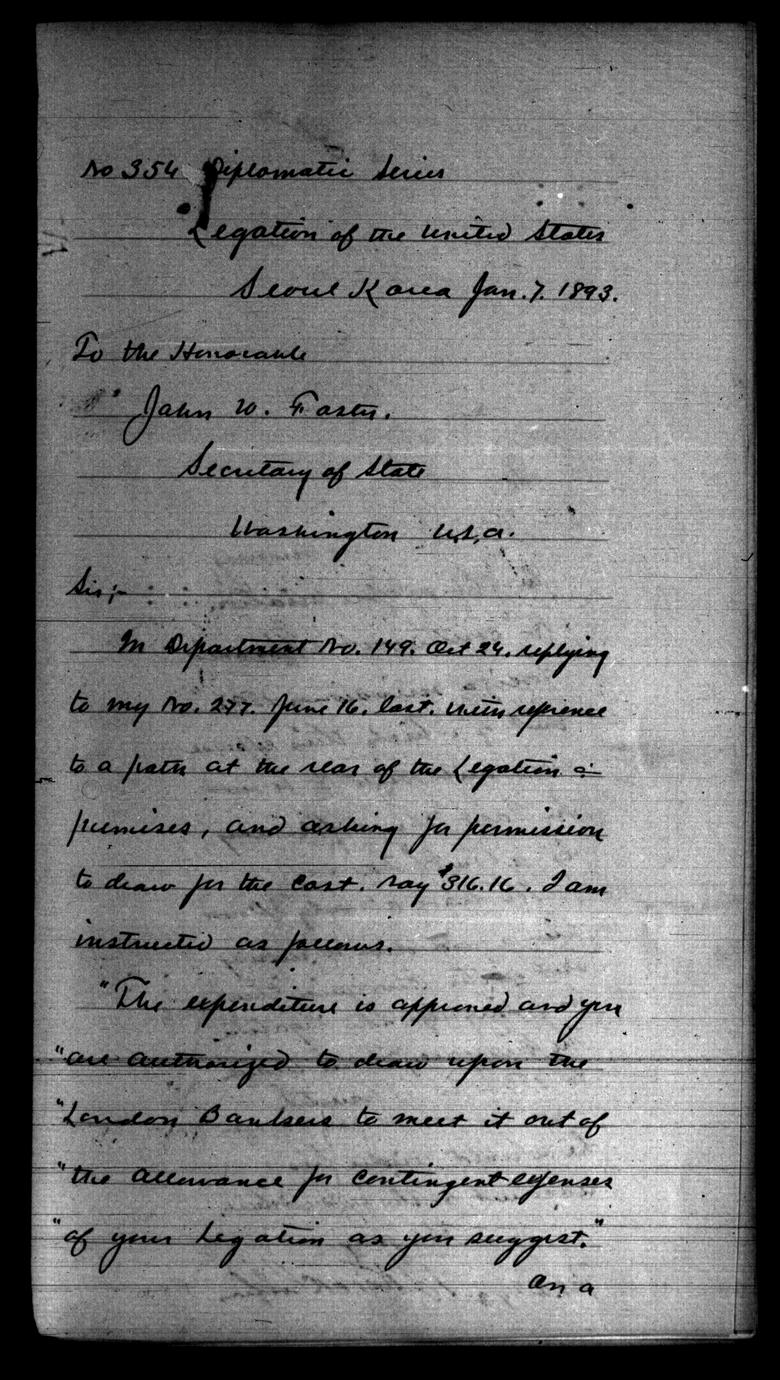 No 354 Diplomatic Series
Legation of the United States
Seoul Korea Jan. 7. 1893.
To the Honorable
John W. Foster.
Secretary of State
Washington U.S.A.
Sir;-
In Department No. 149. Oct 24. replying
to my No. 277. June 16. last. with reference
to a path at the rear of the Legation
premises, and asking for permission
to draw for the cost. say $316.16. I am
instructed as follows.
"The expenditure is approved and you
"are authorized to draw upon the
"London Bankers to meet it out of
"the allowance for contingent expenses
"of your Legation as you suggest."
On a